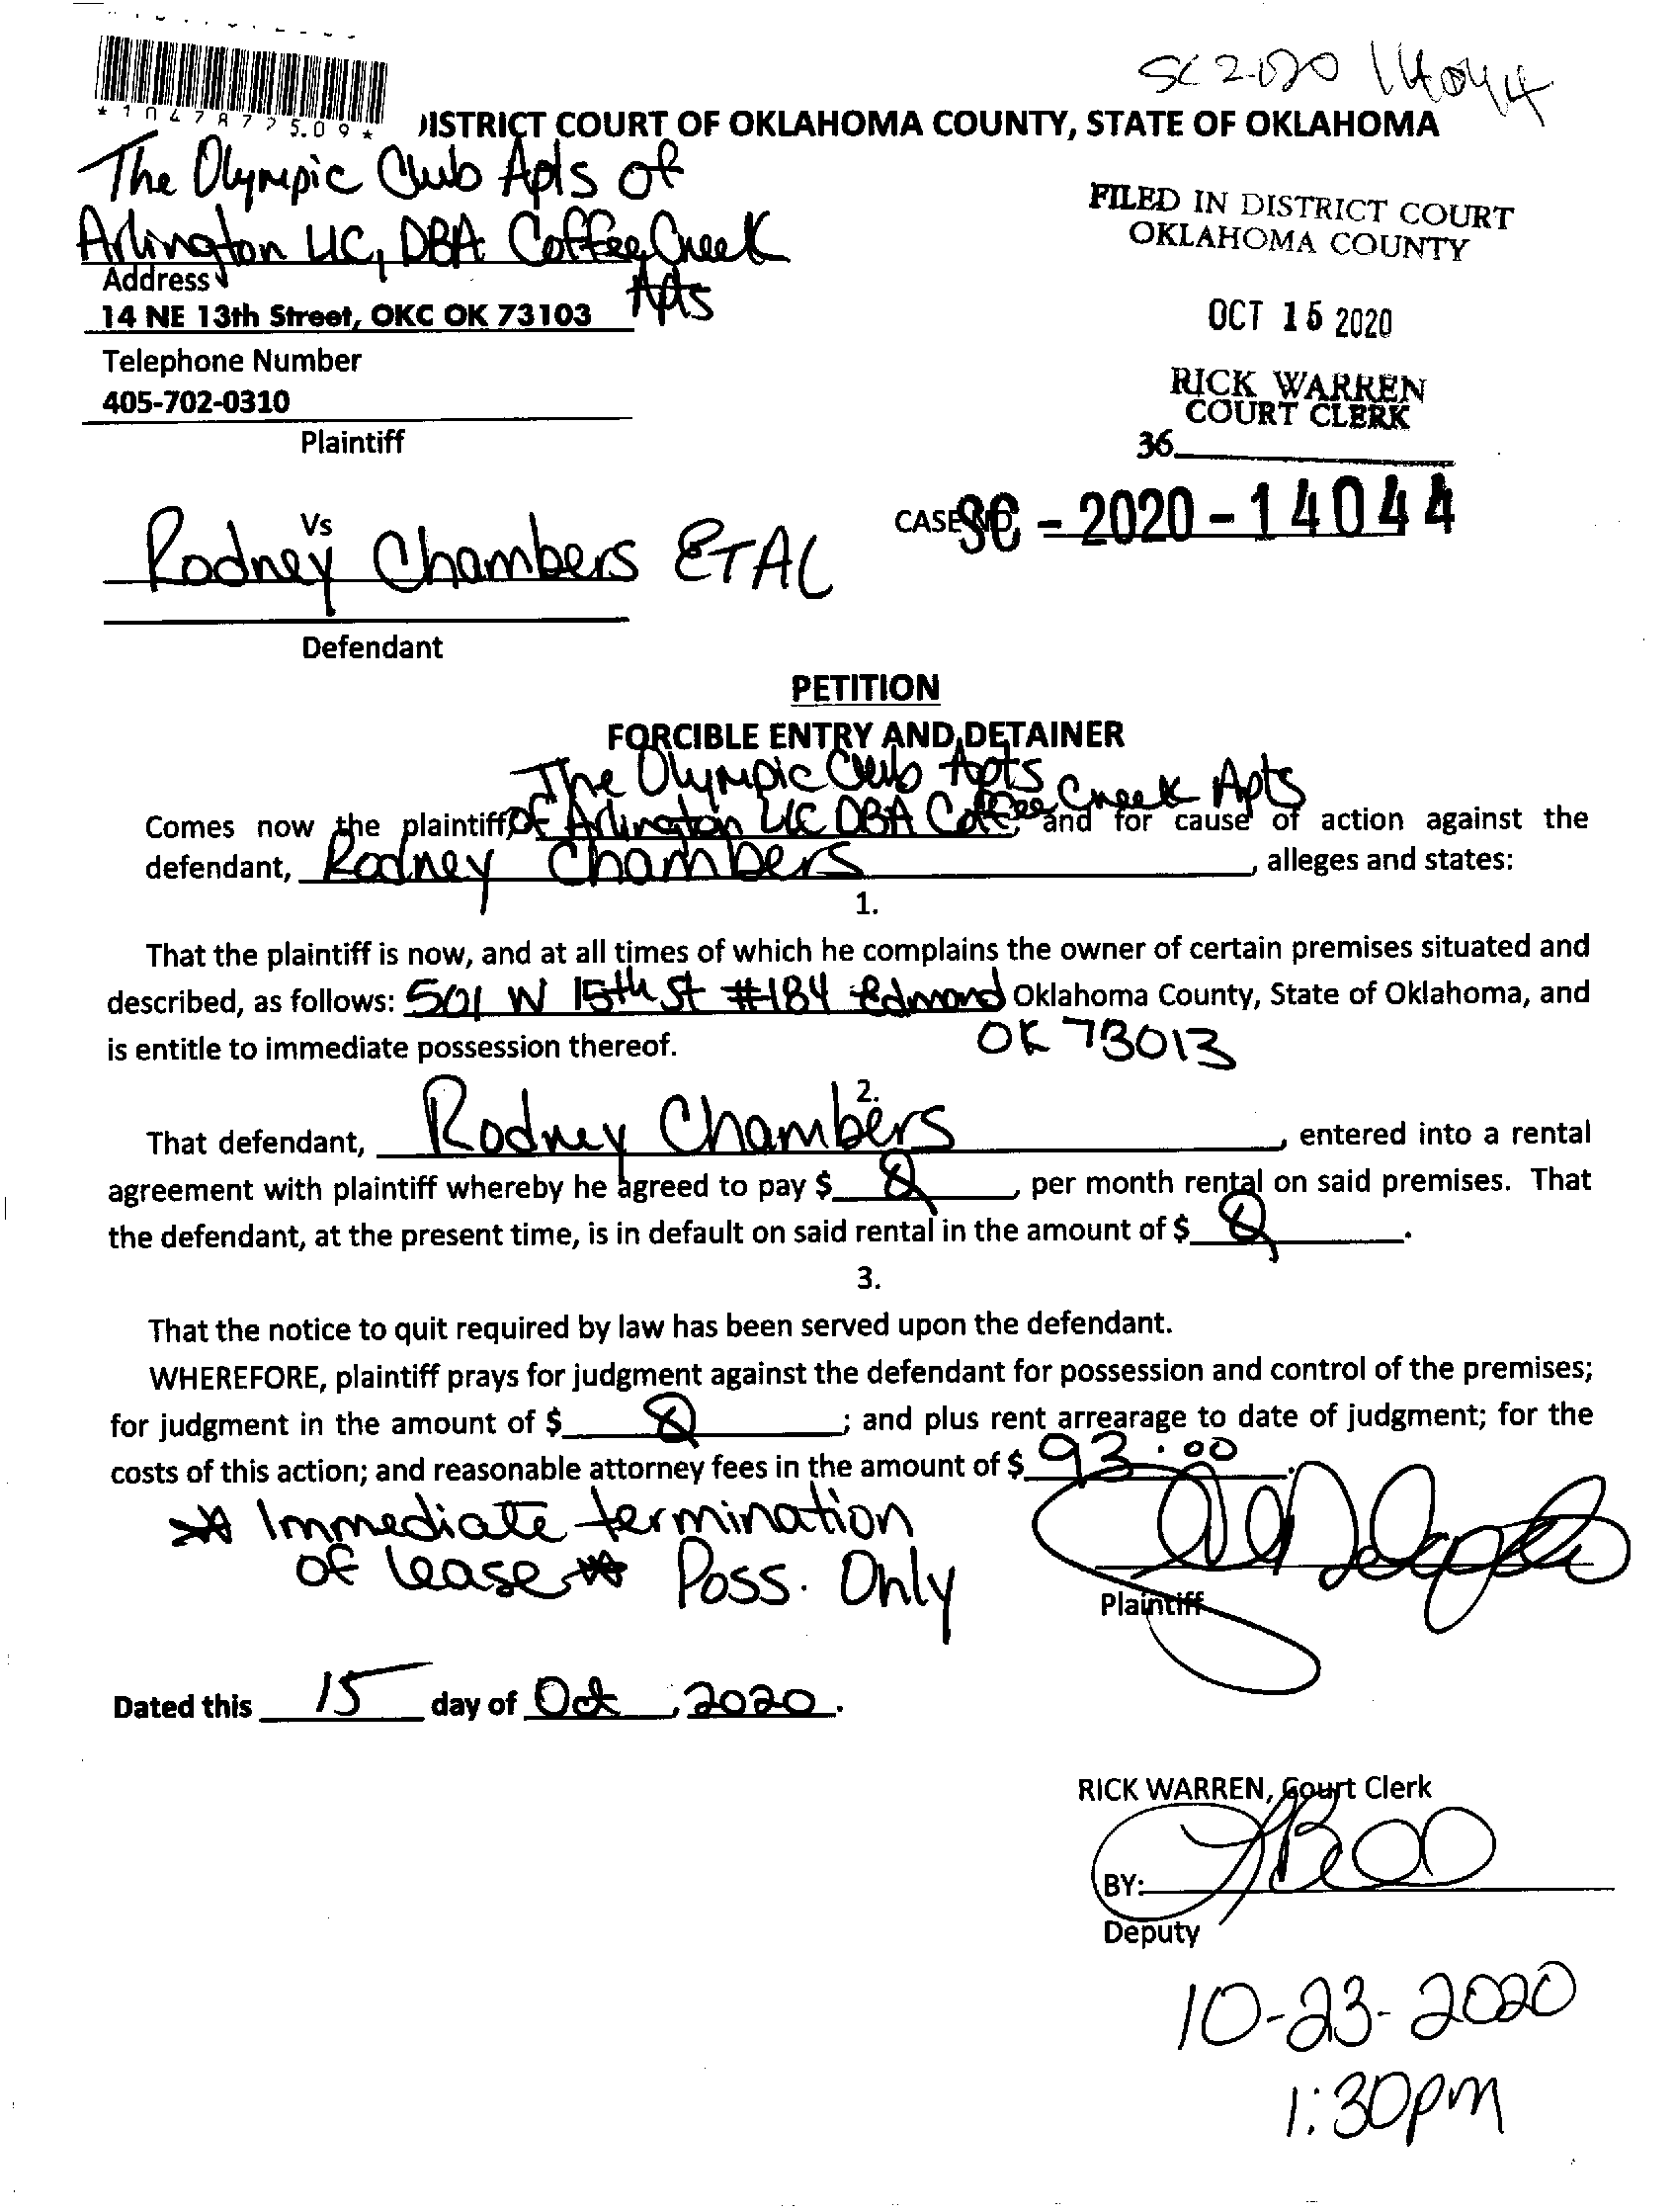 SC 2020 14044
DISTRICT COURT OF OKLAHOMA COUNTY, STATE OF OKLAHOMA
The Olympic Club Apts of
Arlington LLC, DBA Coffee Creek
Apts
Address
14 NE 13th Street, OKC OK 73103
Telephone Number
405-702-0310
Plaintiff
FILED IN DISTRICT COURT
OKLAHOMA COUNTY
OCT 15 2020
RICK WARREN
COURT CLERK
36
Vs
Rodney Chambers ETAL
Defendant
CASE NO. SC - 2020 - 14044
PETITION
FORCIBLE ENTRY AND DETAINER
The Olympic Club Apts
Comes now the plaintiff, of Arlington LLC DBA Coffee Creek Apts, and for cause of action against the
defendant, Rodney Chambers, alleges and states:
1.
That the plaintiff is now, and at all times of which he complains the owner of certain premises situated and
described, as follows: 501 W 15th St #184 Edmond Oklahoma County, State of Oklahoma, and
OK 73013
is entitle to immediate possession thereof.
2.
That defendant, Rodney Chambers, entered into a rental
agreement with plaintiff whereby he agreed to pay $ , per month rental on said premises. That
the defendant, at the present time, is in default on said rental in the amount of $ .
3.
That the notice to quit required by law has been served upon the defendant.
WHEREFORE, plaintiff prays for judgment against the defendant for possession and control of the premises;
for judgment in the amount of $ ; and plus rent arrearage to date of judgment; for the
costs of this action; and reasonable attorney fees in the amount of $ 93.00.
** Immediate termination
of lease ** Poss. Only
Plaintiff
Dated this 15 day of Oct, 2020.
RICK WARREN, Court Clerk
BY:
Deputy
10-23-2020
1:30pm